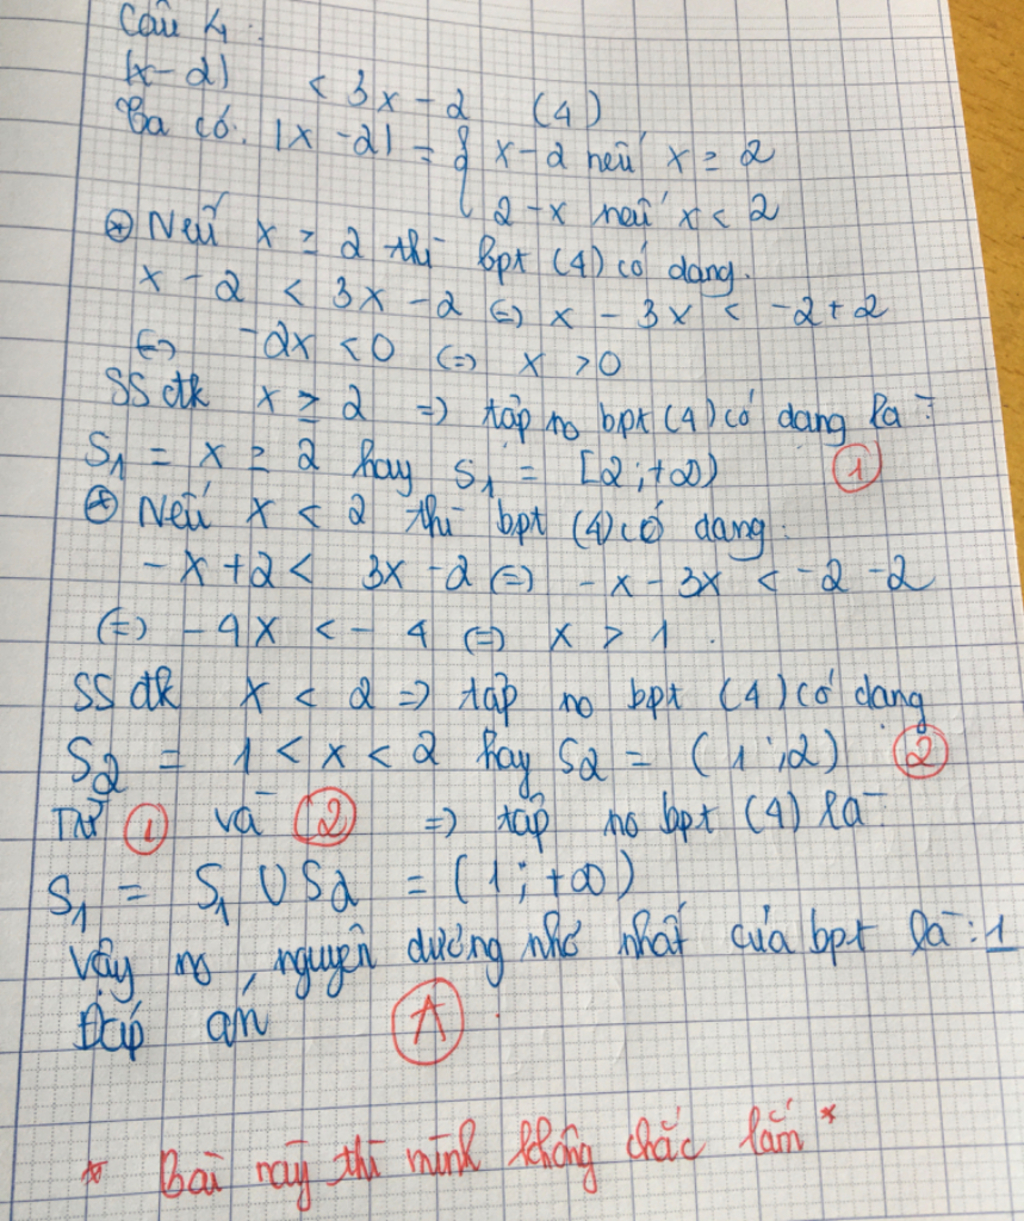 Câu 4:
|x-2| < 3x - 2 (4)
Ta có: |x - 2| = { x - 2 nếu x ≥ 2
2 - x nếu x < 2
⊛ Nếu x ≥ 2 thì bpt (4) có dạng.
x - 2 < 3x - 2 (=) x - 3x < -2 + 2
(=) -2x < 0 (=) x > 0
SS đk x ≥ 2 => tập no bpt (4) có dạng là:
S1 = x ≥ 2 hay S1 = [2 ; +∞) ①
⊛ Nếu x < 2 thì bpt (4) có dạng:
- x + 2 < 3x - 2 (=) - x - 3x < -2 - 2
(=) - 4x < - 4 (=) x > 1.
SS đk x < 2 => tập no bpt (4) có dạng
S2 = 1 < x < 2 hay S2 = (1 ; 2) ②
Từ ① và ② => tập no bpt (4) là
S1 = S1 ∪ S2 = (1 ; +∞)
Vậy no, nguyên dương nhỏ nhất của bpt là: 1
Đáp án Ⓐ.
* Bài này thì mình không chắc lắm *